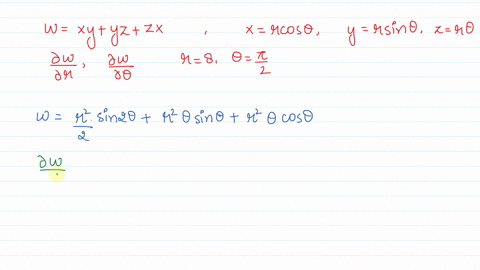 w = xy + yz + zx , x = rcosθ, y = rsinθ, z = rθ
∂w/∂r, ∂w/∂θ r = 8, θ = π/2
w = r²/2 sin2θ + r²θ sinθ + r²θ cosθ
∂w